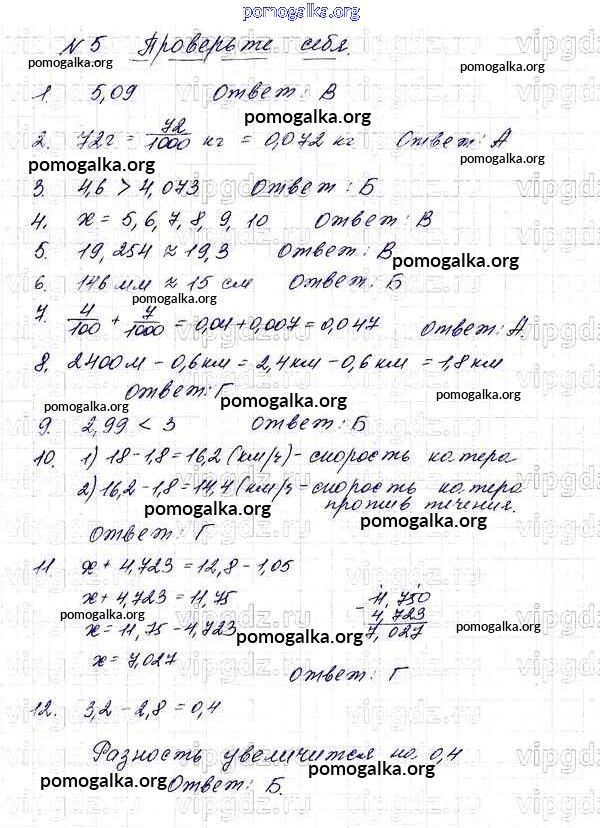 pomogalka.org
№ 5 Проверьте себя.
pomogalka.org pomogalka.org
1. 5,09 Ответ: В
pomogalka.org
2. 72г = 72/1000 кг = 0,072 кг Ответ: А
pomogalka.org pomogalka.org
3. 4,6 > 4,073 Ответ: Б
4. x = 5, 6, 7, 8, 9, 10 Ответ: В
5. 19,254 ≈ 19,3 Ответ: В
pomogalka.org
6. 146 мм ≈ 15 см Ответ: Б
pomogalka.org
7. 4/100 + 7/1000 = 0,04 + 0,007 = 0,047 Ответ: А.
8. 2400 м - 0,6 км = 2,4 км - 0,6 км = 1,8 км
Ответ: Г
pomogalka.org pomogalka.org pomogalka.org
9. 2,99 < 3 Ответ: Б
10. 1) 18 - 1,8 = 16,2 (км/ч) - скорость катера
2) 16,2 - 1,8 = 14,4 (км/ч - скорость катера
против течения.
pomogalka.org pomogalka.org
Ответ: Г
11. x + 4,723 = 12,8 - 1,05
x + 4,723 = 11,75
11,750
- 4,723
7,027
pomogalka.org
x = 11,75 - 4,723
pomogalka.org pomogalka.org
x = 7,027
Ответ: Г
12. 3,2 - 2,8 = 0,4
Разность увеличится на 0,4
pomogalka.org pomogalka.org pomogalka.org
Ответ: Б.
vipgdz.ru